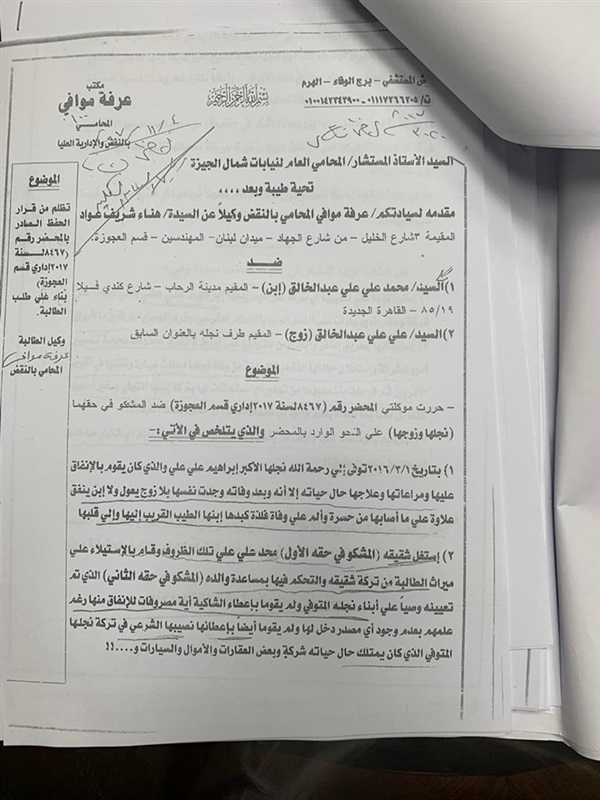 مكتب
عرفة موافي
المحامي
بالنقض والإدارية العليا
بسم الله الرحمن الرحيم
ش المستشفي - برج الوفاء - الهرم
ت/ ٠١١١٧٢٦٦٢٠٥ - ٠١٠٠١٤٢٣٤٣٩٠٠
السيد الأستاذ المستشار/ المحامي العام لنيابات شمال الجيزة
تحية طيبة وبعد ,,,,
مقدمه لسيادتكم/ عرفة موافي المحامي بالنقض وكيلاً عن السيدة/ هناء شريف عواد
المقيمة ٣شارع الخليل - من شارع الجهاد - ميدان لبنان- المهندسين - قسم العجوزة.
ضد
١) السيد/ محمد علي علي عبدالخالق (إبن) - المقيم مدينة الرحاب - شارع كندي فيلا
٨٥/١٩ - القاهرة الجديدة
٢) السيد/ علي علي عبدالخالق (زوج) - المقيم طرف نجله بالعنوان السابق
الموضوع
- حررت موكلتي المحضر رقم (٨٤٦٧لسنة ٢٠١٧ إداري قسم العجوزة) ضد المشكو في حقهما
(نجلها وزوجها) علي النحو الوارد بالمحضر والذي يتلخص في الآتي:-
١) بتاريخ ٢٠١٦/٣/١ توفى إلي رحمة الله نجلها الأكبر إبراهيم علي علي والذي كان يقوم بالإنفاق
عليها ومراعاتها وعلاجها حال حياته إلا أنه وبعد وفاته وجدت نفسها بلا زوج يعول ولا إبن ينفق
علاوة علي ما أصابها من حسرة وألم علي وفاة فلذة كبدها إبنها الطيب القريب إليها وإلي قلبها
٢) إستغل شقيقه (المشكو في حقه الأول) محمد علي علي تلك الظروف وقام بالإستيلاء علي
ميراث الطالبة من تركة شقيقه والتحكم فيها بمساعدة والده (المشكو في حقه الثاني) الذي تم
تعيينه وصياً علي أبناء نجله المتوفي ولم يقوما بإعطاء الشاكية أية مصروفات للإنفاق منها رغم
علمهم بعدم وجود أي مصدر دخل لها ولم يقوما أيضاً بإعطائها نصيبها الشرعي في تركة نجلها
المتوفي الذي كان يمتلك حال حياته شركة وبعض العقارات والأموال والسيارات و....!!
الموضوع
تظلم من قرار
الحفظ الصادر
بالمحضر رقم
(٨٤٦٧ لسنة
٢٠١٧ إداري قسم
العجوزة)
بناء علي طلب
الطالبة.
وكيل الطالبة
عرفة موافي
المحامي بالنقض